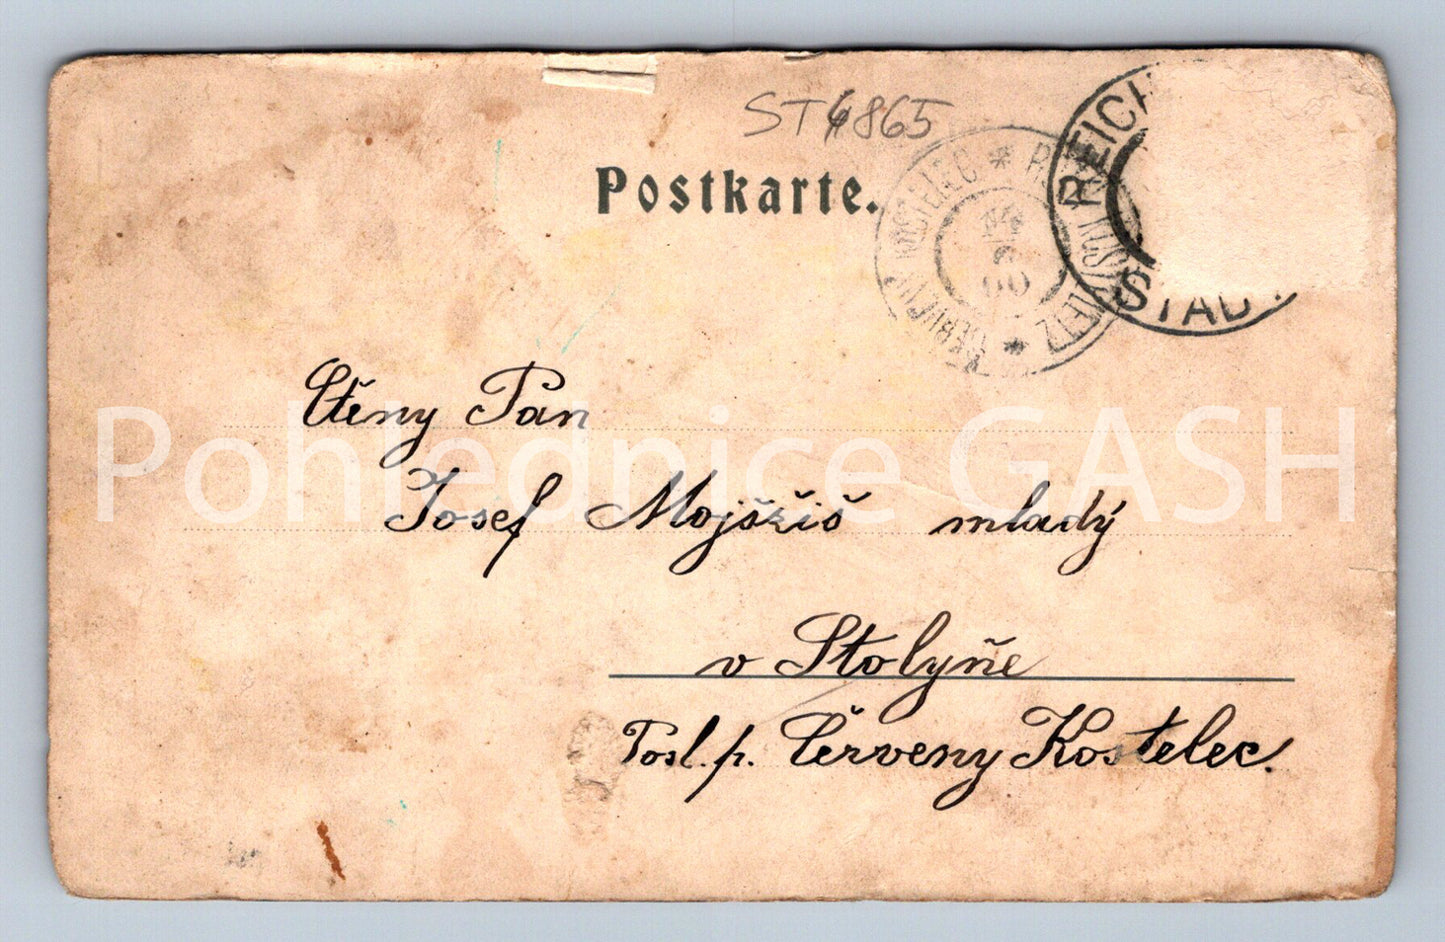 ST 4865
Postkarte.
ČERVENÝ KOSTELEC * ROTH KOSTELETZ *
00
REICH
STADT
Ctěny Pan
Josef Mojšžiš mladý
v Stolyňe
Posl. p. Červeny Kostelec.
Pohlednice GASH